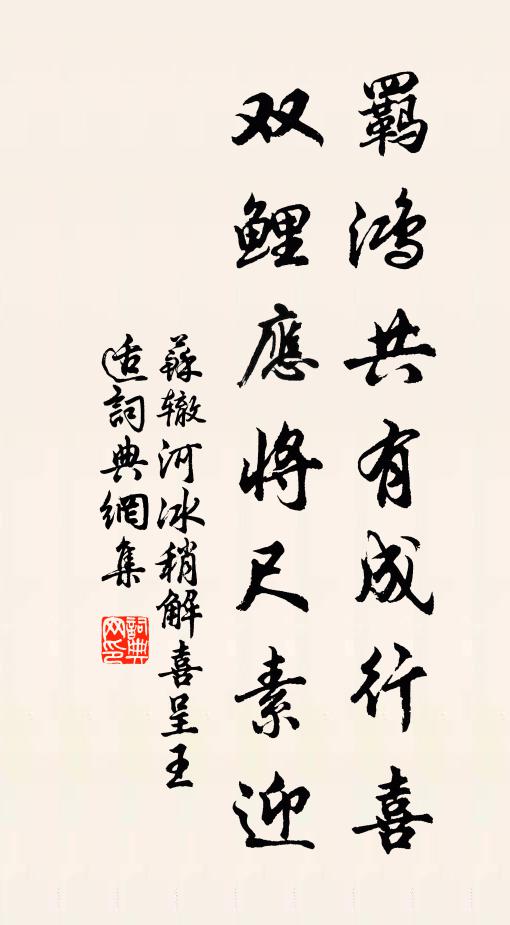 羇鸿共有成行喜
双鲤應将尺素迎
蘇辙河冰稍解喜呈王
适詞典網集
詞典网印